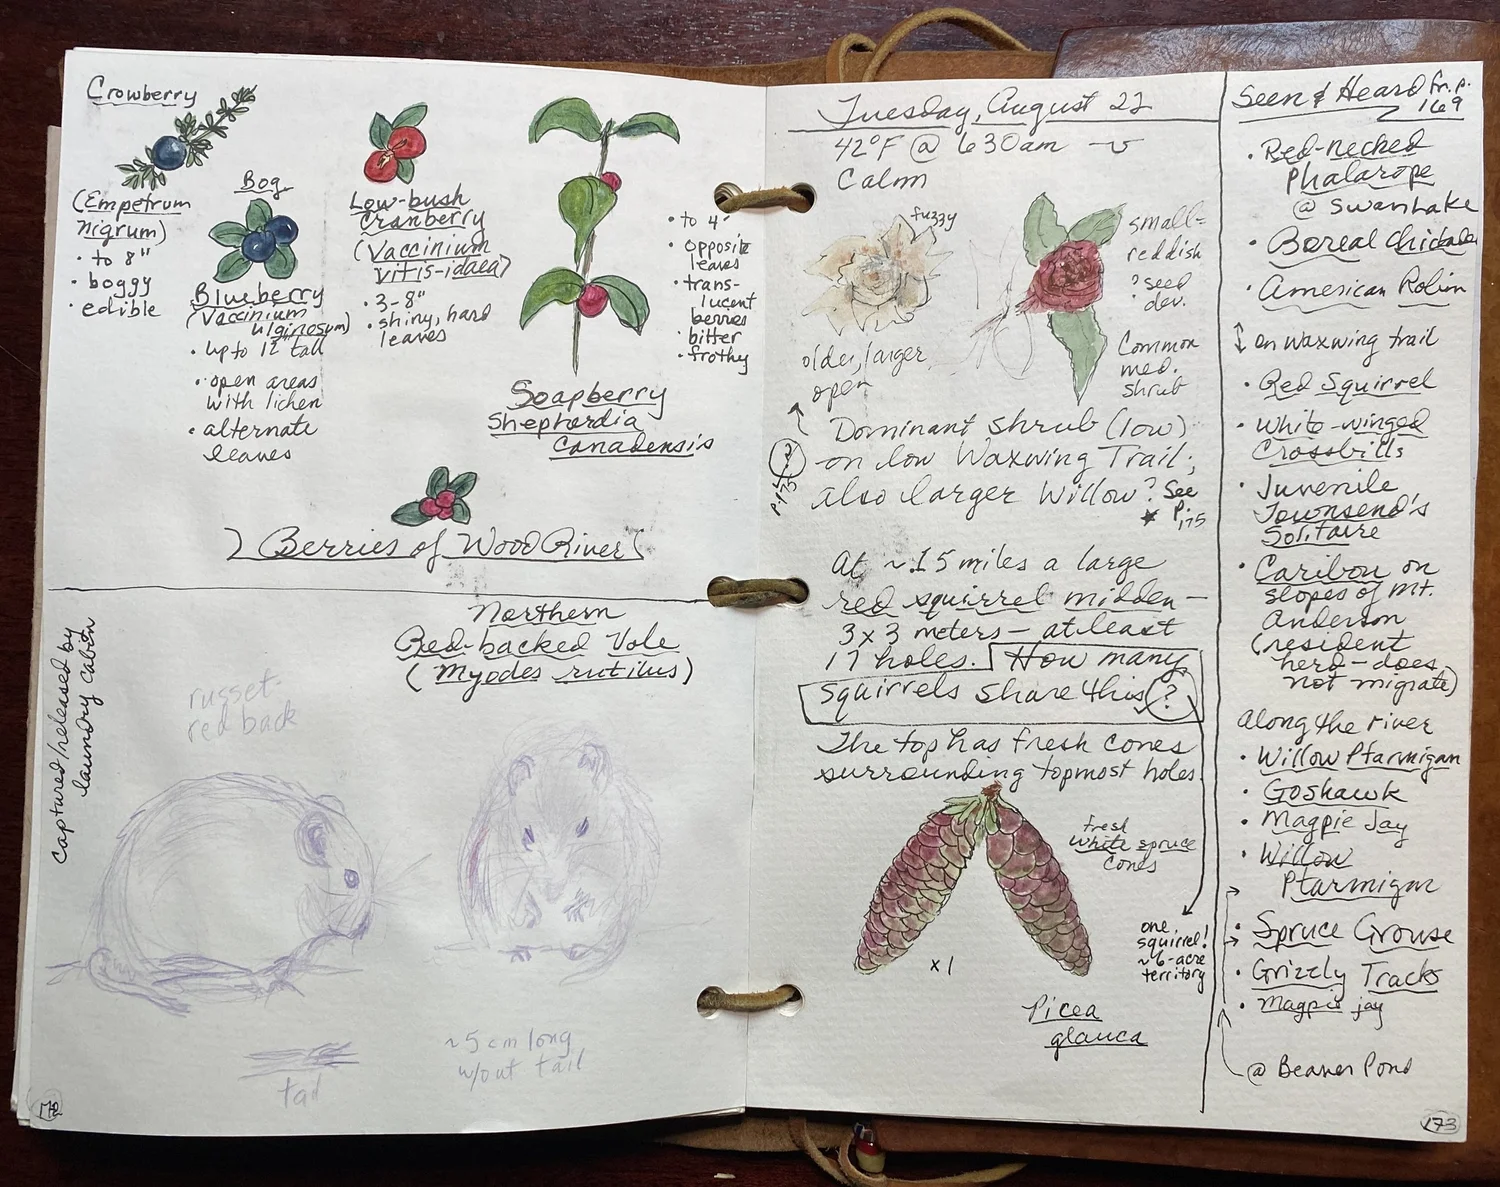 Crowberry
(Empetrum
nigrum)
• to 8"
• boggy
• edible
Bog
Blueberry
(Vaccinium
uliginosum)
• up to 12" tall
• open areas
with lichen
• alternate
leaves
Low-bush
Cranberry
(Vaccinium
vitis-idaea)
• 3-8"
• shiny, hard
leaves
• to 4'
• opposite
leaves
• trans-
lucent
berries
• bitter
• frothy
Soapberry
Shepherdia
Canadensis
Berries of Wood River
Captured/released by
laundry cabin
Northern
Red-backed Vole
(Myodes rutilus)
russet-
red back
tail
~5 cm long
w/out tail
172
Tuesday, August 22
42°F @ 630am
Calm
fuzzy
older, larger,
open
small-
reddish
? seed
dev.
Common
med.
shrub
Dominant shrub (low)
on low Waxwing Trail;
also larger Willow? See
P. 175
At ~.15 miles a large
red squirrel midden—
3x3 meters— at least
17 holes. How many
squirrels share this?
The top has fresh cones
surrounding topmost holes
fresh
white spruce
cones
x1
one
squirrel!
~6-acre
territory
Picea
glauca
Seen & Heard fr. p.
169
• Red-necked
Phalarope
@ Swan Lake
• Boreal Chickadee
• American Robin
on Waxwing trail
• Red Squirrel
• White-winged
Crossbills
• Juvenile
Townsend's
Solitaire
• Caribou on
slopes of Mt.
Anderson
(resident
herd-does
not migrate)
along the river
• Willow Ptarmigan
• Goshawk
• Magpie Jay
• Willow
Ptarmigan
• Spruce Grouse
• Grizzly Tracks
• Magpie jay
@ Beaver Pond
173